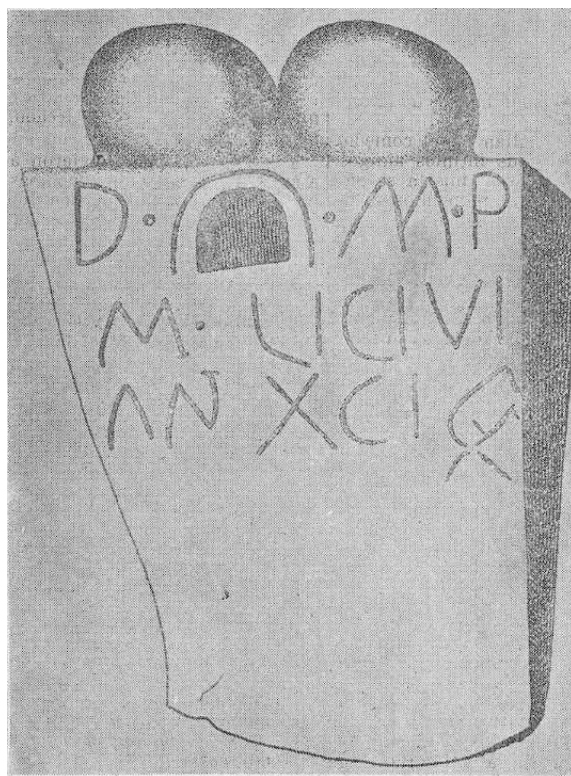 D · · M · P
M · LICIVI
AN XCI